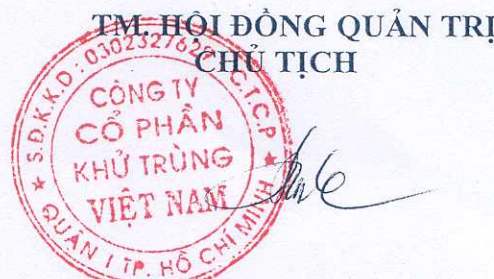 TM. HỘI ĐỒNG QUẢN TRỊ
CHỦ TỊCH
S.Đ.K.K.D: 0302327629 - C.T.C.P
CÔNG TY
CỔ PHẦN
KHỬ TRÙNG
VIỆT NAM
QUẬN 1 TP. HỒ CHÍ MINH